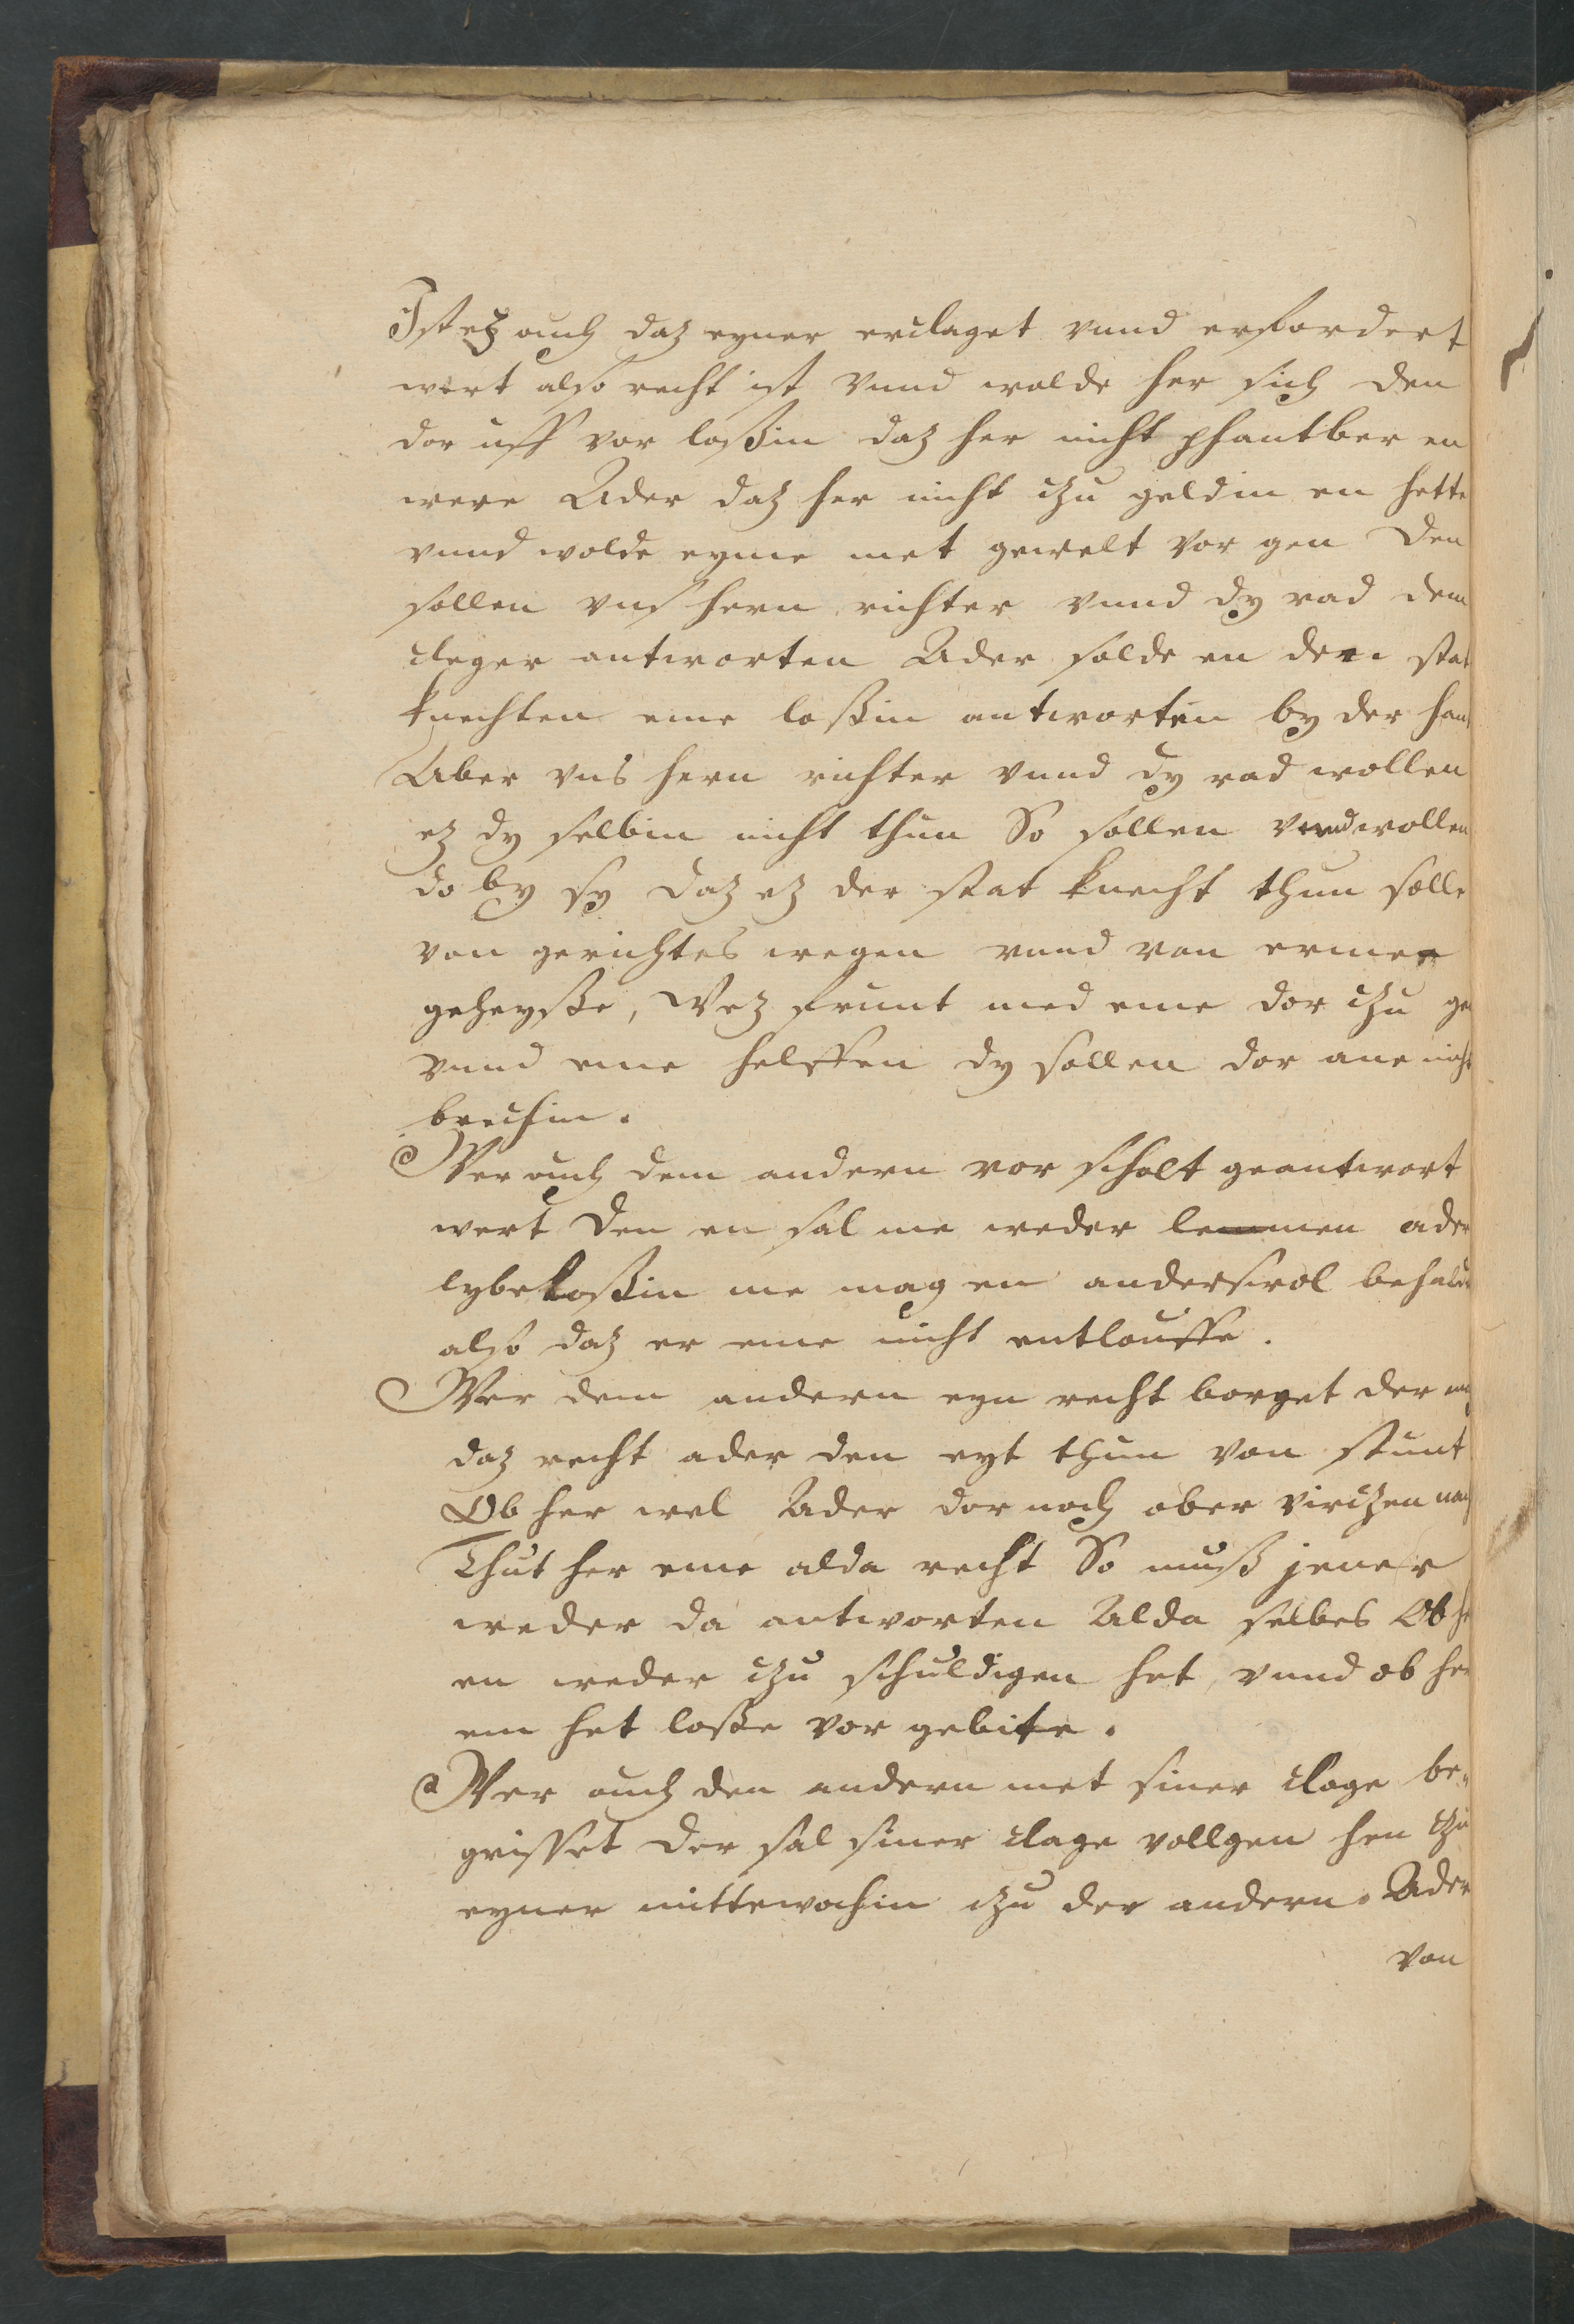 Ist ez auch daz eyner erclaget vnnd erfordert
wert also recht ist vnnd wolde her sich den
dor uff vor loßin daz her nicht phantber en
were Ader daz her nicht czu geldin en hette
vnnd wolde eyme met gewalt vor gen Den
sollen vns hern richter vnnd dy rad dem
cleger antworten Ader solde en den stat
knechten eme loßin antworten by der hant
Aber vns hern richter vnnd dy rad wollen
ez dy selbin nicht thun So sollen vnnd wollen
do by sy daz ez der stat knecht thun solle
von gerichtes wegen vnnd von ermer
geheysße, Wez frunt med eme dor czu gen
vnnd eme helffen dy sollen dor ane nicht
bruchin.
Wer auch dem andern vor scholt geantwort
wert den en sal me weder lemmen ader
lybeloßin me mag en anders wol behalde
also daz er eme nicht entlouffe.
Wer dem andern eyn recht borget der mag
daz recht ader den eyt thun von stunt
Ob her wel Ader dor noch ober virczen nach
Thut her eme alda recht So muß jener
weder da antworten Alda selbes Ob he
en weder czu schuldigen het, vnnd ob her
em het loße vor gebite.
Wer auch den andern met siner clage be„
griffet der sal siner clage vollgen hen czu
eyner mittewochin czu der andern. Ader
von